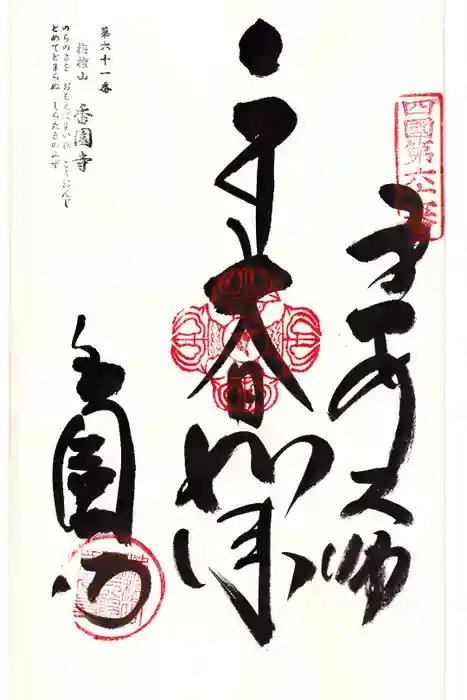 四國第六十一番
子安大師
大日如来
第六十一番
栴檀山 香園寺
のちのよを おもえばまいれ こうおんじ
とめてとまらぬ しらたきのみず
香園寺